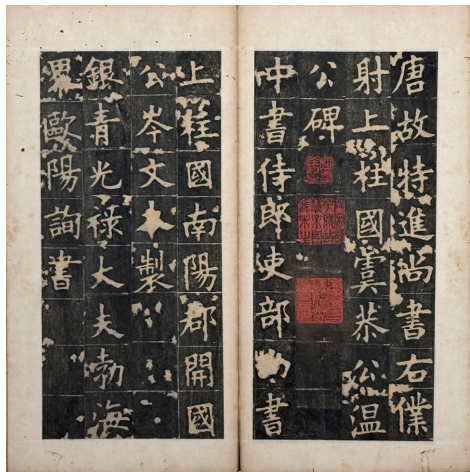 唐故特進尚書右僕
射上柱國虞恭公温
公碑
中書侍郎吏部書
上柱國南陽郡開國
公岑文本製
銀青光祿大夫勃海
男歐陽詢書